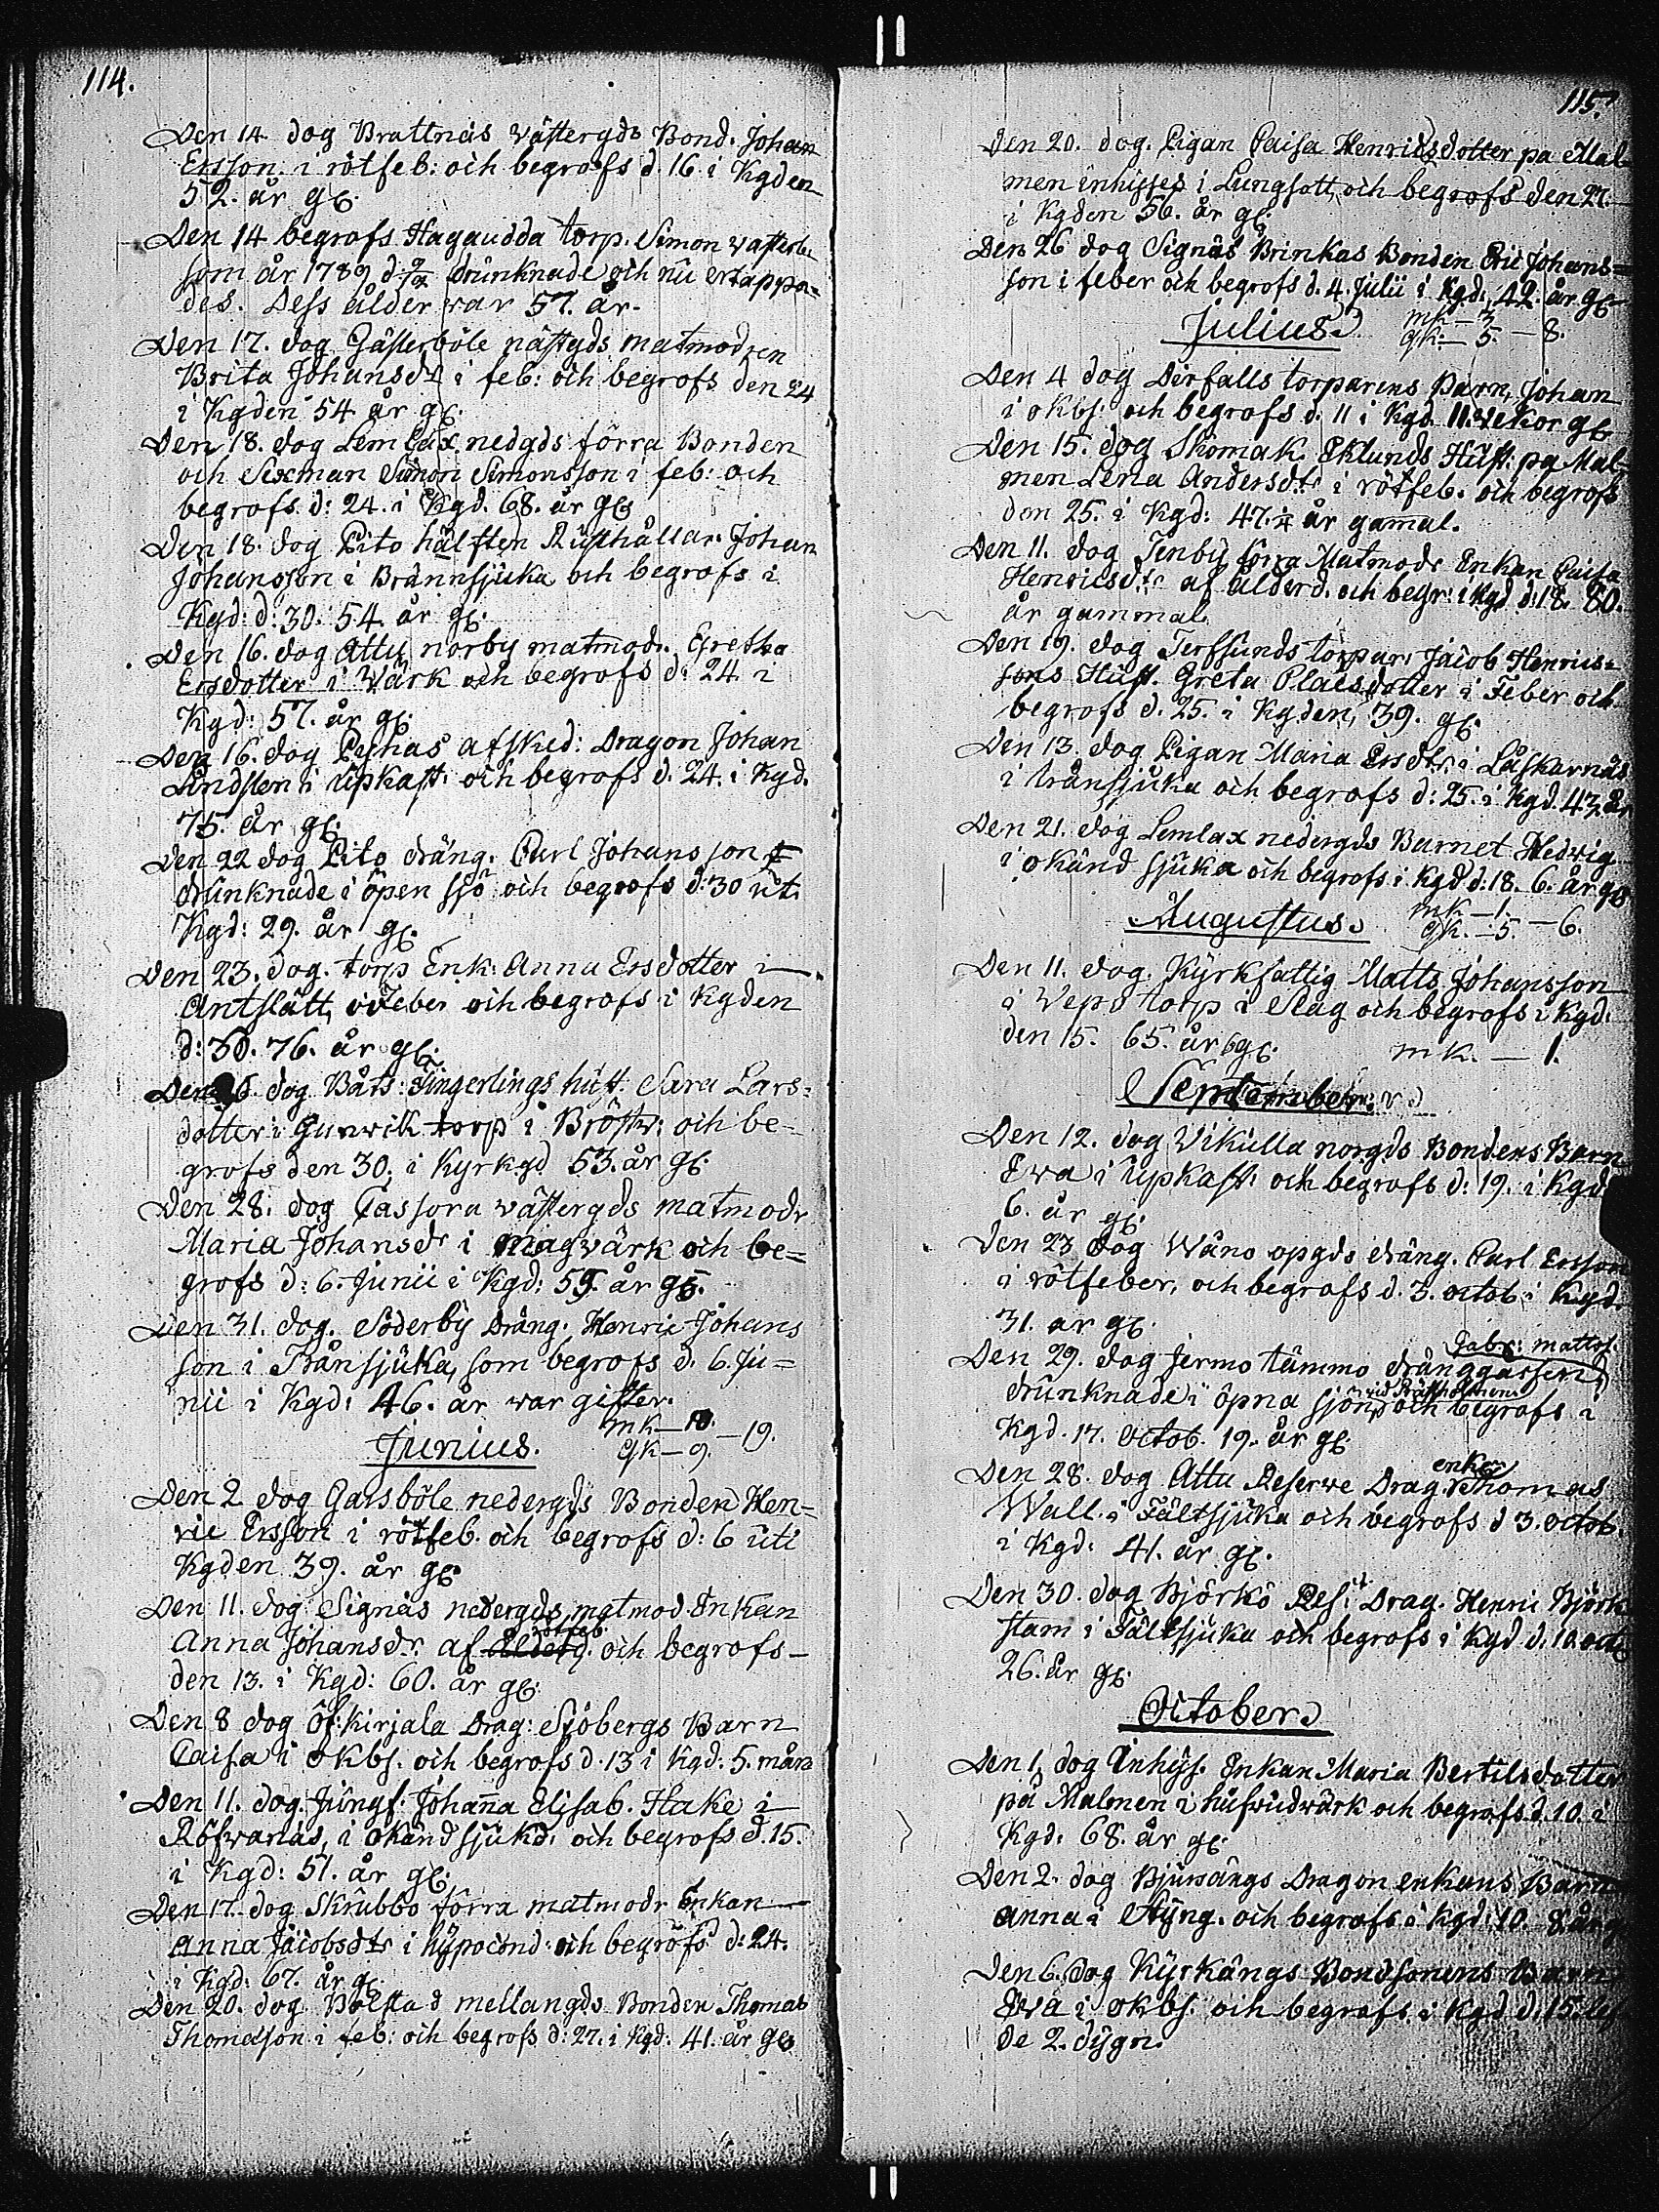 114.
Den 14. dog Brattnäs Wästergds Bond. Johan
Ersson i rötfeb: och begrofs d. 16 i Kgden
52. år gl.
Den 14 begrofs Hagaudda torp. Simon
som år 1789 d drunknade och nu ertappa=
des. Dess ålder war 57. år.
Den 17. dog Gästerböle nästgds matmodren
Brita Johansdr i feb: och begrofs den 24
i Kgden 54 år gl.
Den 18. dog Lemlax nedgds förra Bonden
och Sexman Simon Simonsson i feb: och
begrofs d: 24. i Kgd. 68. år gl.
Den 18. dog Pito hälften Rusthållar. Johan
Johansson i Brännsjuka och begrofs i
Kgd: d: 30. 54. år gl.
Den 16. dog Attu norby matmodr. Gretha
Ersdotter i Wärk och begrofs d: 24 i
Kgd: 57. år gl.
Den 16. dog afsked: Dragon Johan
Lindsten i upkast. och begrofs d. 24. i Kgd.
75. år gl.
Den 22 dog Pito dräng. Carl Johansson
drunknade i öpen sjö och begrofs d: 30 uti
Kgd: 29. år gl.
Den 23. dog. torp Enk: Anna Ersdotter i
Antslätt, i Feber och begrofs i Kgden
d: 30. 76. år gl.
Den 26. dog Båts: Fingerlings hust. Sara Lars=
dotter i Gunwik torp i Bröstw: och be=
grofs den 30. i Kyrkgd 53. år gl.
Den 28. dog Tassora wästergds matmodr
Maria Johansdr i Magwärk och be=
grofs d: 6. Junii i Kgd: 59. år gl.
Den 31. dog. Söderby Dräng. Henric Johans
son i Trånsjuka, som begrofs d. 6. Ju=
nii i Kgd: 46. år war gifter.
mk — 10.
Junius. qk — 9. — 19.
Den 2 dog Garsböle nedergds Bonden Hen=
ric Ersson i rötfeb. och begrofs d: 6 uti
Kgden 39. år gl.
Den 11. dog Signäs nedergds matmod. Enkan
rötfeb.
Anna Johansdr. af Ålderd. och begrofs
den 13. i Kgd: 60. år gl.
Den 8 dog Öf:kirjala Drag: Sjöbergs Barn
Caisa i okbs. och begrofs d. 13 i Kgd: 5. mån
Den 11. dog. Jungf. Johanna Elisab. Hake i
Röfwanäs, i okänd sjukd. och begrofs d. 15.
i Kgd: 51. år gl.
Den 17. dog Skrubbo förra matmodr Enkan
Anna Jacobsdtr i hypocond: och begrofs d: 24.
i Kgd: 67. år gl.
Den 20. dog Bolstad mellangds Bonden Thomas
Thomasson i feb: och begrofs d: 27. i Kgd. 41. år gl.
115.
Den 20. dog. Pigan Caisa Henricsdotter pa Mal
men inhyses i Lungsott, och begrofs den 27.
i Kgden 56. år gl.
Den 26 dog Signäs Brinkas Bonden Eric Johans=
son i feber och begrofs d. 4. Julii i Kgd. 42. år gl.
mk — 3
Julius. qk — 5. — 8.
Den 4 dog Dirfalls torparens Barn, Johan
i okbs: och begrofs d. 11 i Kgd. 11. wekor gl.
Den 15. dog Skomak. Eklunds Hust: pa Mal
men Lena Andersdtr i rötfeb. och begrofs
den 25. i Kgd: 47. år gamal.
Den 11. dog Tenby förra Matmodr Enkan Caisa
Henricsdtr af ålderd. och begr: i Kgd d: 18. 80.
år gammal.
Den 19. dog Terfsunds torpar. Jacob Henrics=
sons Hust. Greta Claesdotter i Feber och
begrofs d. 25. i Kgden, 39. gl.
Den 13. dog Pigan Maria Ersdtr. i Låskarnäs
i trånsjuka och begrofs d: 25. i Kgd. 43 år
Den 21. dog Lemlax nedergds Barnet Hedwig
i okänd sjuka och begrofs i Kgd d: 18. 6. år gl.
mk — 1.
Augustus. qk. — 5. — 6.
Den 11. dog. Kyrkfattig Matts Johansson
i Wepo torp i Slag och begrofs i Kgd.
den 15. 65. år gl. mk. — 1.
September.
Den 12. dog Vikulla norgds Bondens Barn
Ewa i upkast. och begrofs d: 19. i Kgd
6. år gl.
Den 23 dog Wåno opgds dräng. Carl Ersson
i rötfeber, och begrofs d. 3. octob. i Kgd.
31. år gl.
Gabr: mattss.
Den 29. dog Jermo tämmo dränggassen
drunknade i öpna sjön och begrofs i
Kgd. 17. octob. 19. år gl.
enka
Den 28. dog Attu Reserwe Drag. Thomas
Wall. i Fältsjuka och begrofs d 3. octob.
i Kgd: 41. år gl.
Den 30. dog Björkö Res: Drag. Henric Björk
stam i Fältsjuka och begrofs i Kgd d. 10. oct
26. år gl.
October
Den 1. dog Inhys. Enkan Maria Bertilsdotter
på Malmen i hufwudwärk och begrofs d. 10. i
Kgd: 68. år gl.
Den 2. dog Bjursängs Dragon enkans Barn
Anna i Styng. och begrofs i Kgd: 10. 8.
Den 6. dog Kyrkängs Bondsonens Barn
Ewa i okbs. och begrofs i Kgd d. 15.
de 2. dygn.